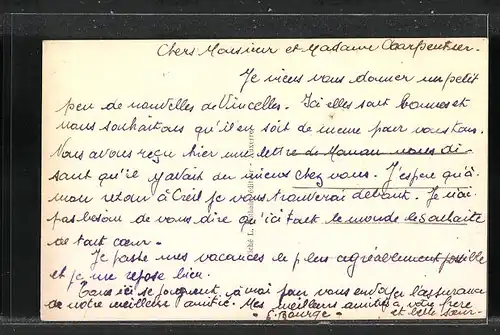 Chers Monsieur et Madame Charpentier.
Je viens vous donner un petit
peu de nouvelles de Vincelles. Ici elles sont bonnes et
nous souhaitons qu'il en soit de même pour vous tous.
Nous avons reçu hier une lettre de Maman nous di
sant qu'il y avait du mieux chez vous. J'espère qu'à
mon retour à Creil je vous trouverai debout. Je n'ai
pas besoin de vous dire qu'ici tout le monde le souhaite
de tout cœur.
Je passe mes vacances le plus agréablement possible
et je me repose bien.
Tous ici se joignent à moi pour vous envoyer l'assurance
de notre meilleure amitié. Mes meilleures amitiés à votre frère
et belle sœur.
Bourge